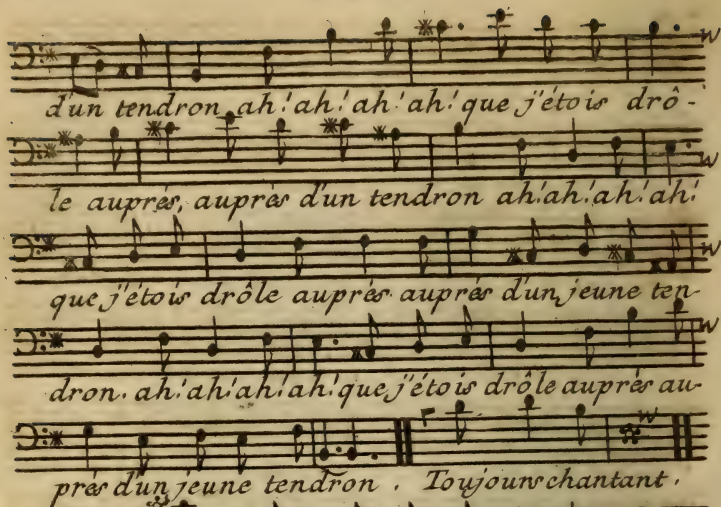 d'un tendron ah! ah! ah! ah! que j'étois drô-
le auprés, auprés d'un tendron ah! ah! ah! ah!
que j'étois drôle auprés auprés d'un jeune ten-
dron. ah! ah! ah! ah! que j'étois drôle auprés au-
prés d'un jeune tendron. Toujours chantant.